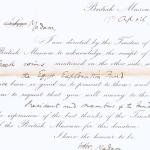 British Museum
Madam
I am directed by the Trustees of
British Museum to acknowledge the receipt of
coins mentioned on the other side, which
the Egypt Exploration Fund
been so good as to present to them: and
to request that you will convey to the
President and members of the
expression of the best thanks of the Trustees
the British Museum for this donation.
I have the honour to be,
Madam